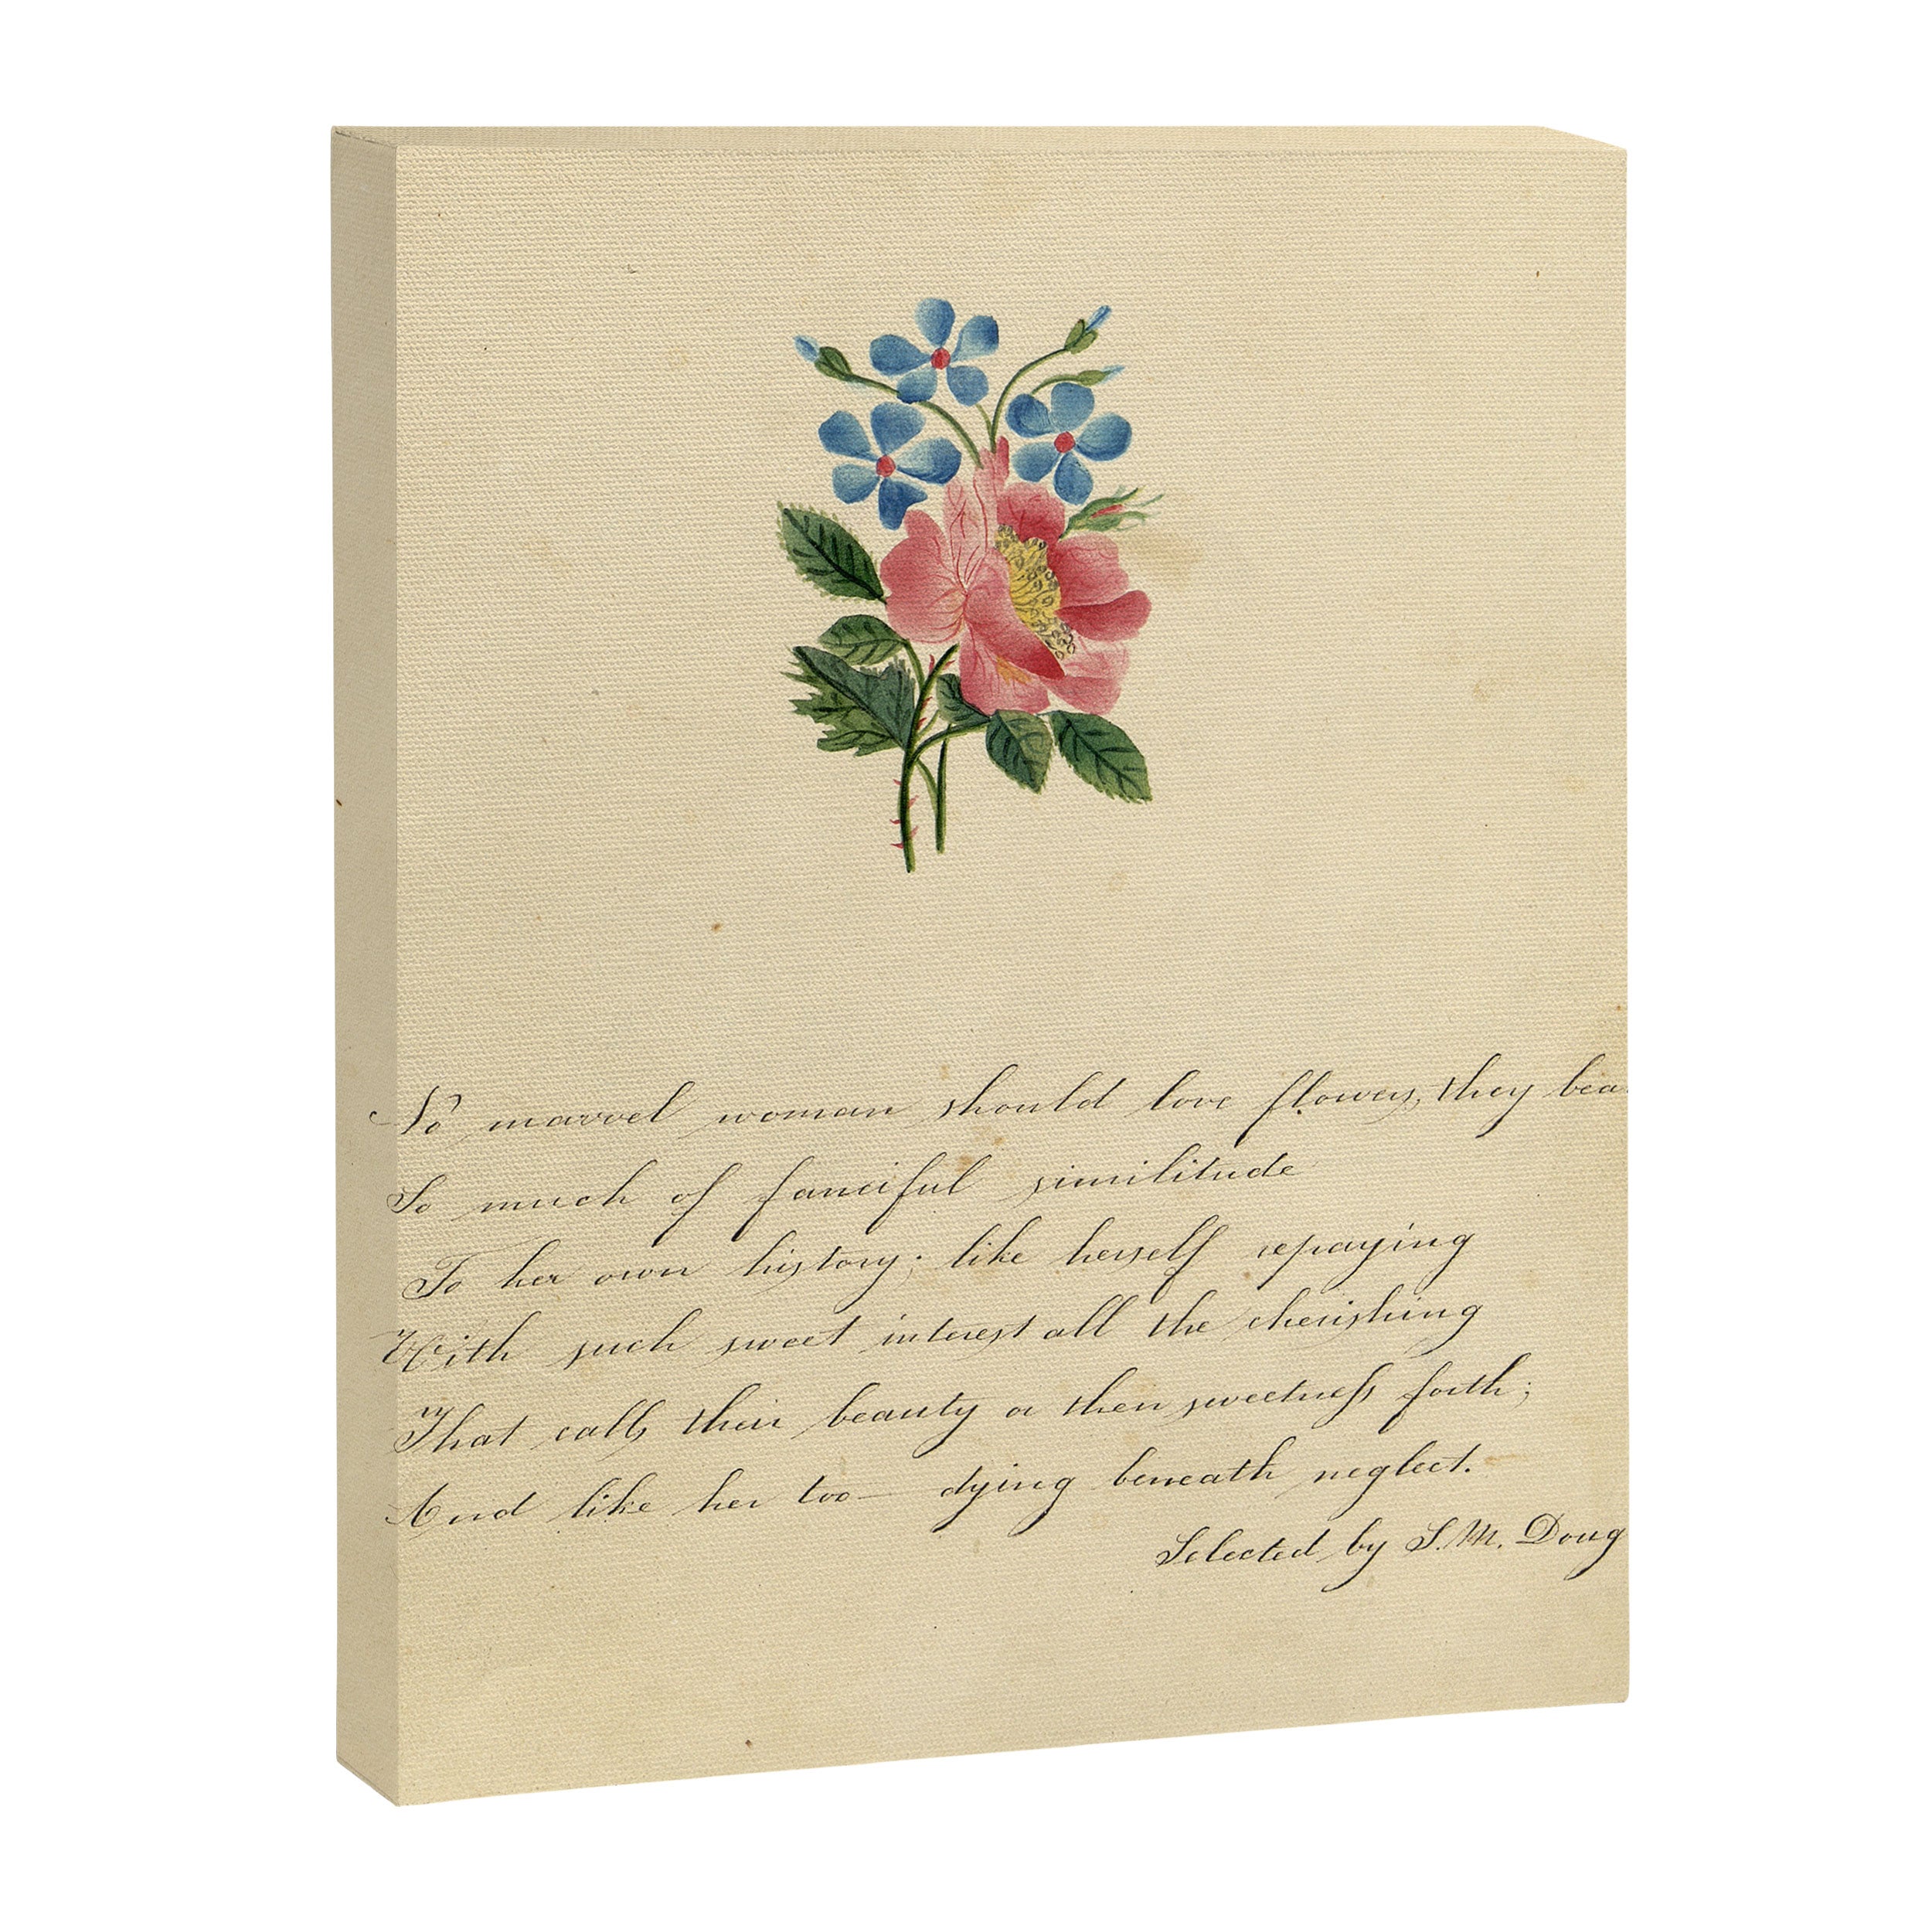 No marvel woman should love flowers, they bea
So much of fanciful similitude
To her own history; like herself repaying
With such sweet interest all the cherishing
That calls their beauty or their sweetness forth;
And like her too— dying beneath neglect.
Selected by S. M. Doug